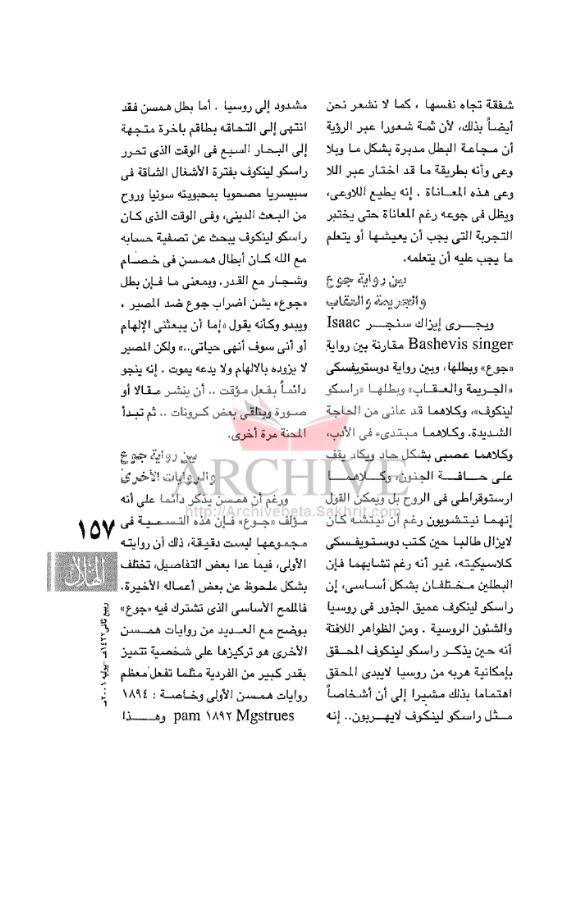 شفقة تجاه نفسها ، كما لا نشعر نحن
أيضاً بذلك، لأن ثمة شعورا عبر الرؤية
أن مجاعة البطل مدبرة بشكل ما وبلا
وعى وأنه بطريقة ما قد اختار عبر اللا
وعى هذه المعاناة . إنه يطيع اللاوعى،
ويظل فى جوعه رغم المعاناة حتى يختبر
التجربة التى يجب أن يعيشها أو يتعلم
ما يجب عليه أن يتعلمه.
بين رواية جوع
والجريمة والعقاب
ويجرى إيزاك سنجر Isaac
Bashevis singer مقارنة بين رواية
«جوع» وبطلها، وبين رواية دوستويفسكى
«الجريمة والعقاب» وبطلها «راسكو
لينكوف»، وكلاهما قد عانى من الحاجة
الشديدة. وكلاهما مبتدىء فى الأدب،
وكلاهما عصبى بشكل حاد ويكاد يقف
على حافة الجنون، وكلاهما
ارستوقراطى فى الروح بل ويمكن القول
إنهما نيتشويون رغم أن نيتشه كان
لايزال طالبا حين كتب دوستويفسكى
كلاسيكيته، غير أنه رغم تشابهما فإن
البطلين مختلفان بشكل أساسى، إن
راسكو لينكوف عميق الجذور فى روسيا
والشئون الروسية . ومن الظواهر اللافتة
أنه حين يذكر راسكو لينكوف المحقق
بإمكانية هربه من روسيا لايبدى المحقق
اهتماما بذلك مشيرا إلى أن أشخاصاً
مثل راسكو لينكوف لايهربون.. إنه
مشدود إلى روسيا . أما بطل همسن فقد
انتهى إلى التحاقه بطاقم باخرة متجهة
إلى البحار السبع فى الوقت الذى تحرر
راسكو لينكوف بفترة الأشغال الشاقة فى
سيبسريا مصحوبا بمحبوبته سونيا وروح
من البعث الدينى، وفى الوقت الذى كان
راسكو لينكوف يبحث عن تصفية حسابه
مع الله كان أبطال همسن فى خصام
وشجار مع القدر، وبمعنى ما فإن بطل
«جوع» يشن اضراب جوع ضد المصير ،
ويبدو وكأنه يقول «إما أن يبعثنى الإلهام
أو أنى سوف أنهى حياتى..» ولكن المصير
لا يزوده بالالهام ولا يدعه يموت . إنه ينجو
دائماً بفعل مؤقت .. أن ينشر مقالا أو
صورة ويتلقى بعض كرونات .. ثم تبدأ
المحنة مرة أخرى.
بين رواية جوع
والروايات الأخرى
ورغم أن همسن يذكر دائما على أنه
مؤلف «جوع» فإن هذه التسمية فى
مجموعها ليست دقيقة، ذلك أن روايته
الأولى، فيما عدا بعض التفاصيل، تختلف
بشكل ملحوظ عن بعض أعماله الأخيرة.
فالملمح الأساسى الذى تشترك فيه «جوع»
بوضوح مع العديد من روايات همسن
الأخرى هو تركيزها على شخصية تتميز
بقدر كبير من الفردية مثلما تفعل معظم
روايات همسن الأولى وخاصة : ١٨٩٤
pam ١٨٩٢ Mgstrues وهذا
١٥٧
الهلال
ربيع ثانى ١٤٢٢هـ - يوليه ٢٠٠١مـ
ARCHIVE
http://Archivebeta.Sakhrit.com